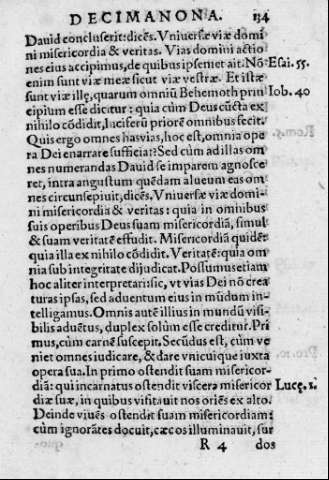 DECIMANONA. 134
Dauid concluserit: dicẽs. Vniuersæ viæ domi
ni misericordia & veritas. Vias domini actio
nes eius accipimus, de quibus ipsemet ait. Nõ Esai. 55.
enim sunt viæ meæ sicut viæ vestræ. Et istæ
sunt viæ illę, quarum omniũ Behemoth prin Iob. 40
cipium esse dicitur: quia cùm Deus cũcta ex
nihilo cõdidit, luciferũ priorẽ omnibus fecit.
Quis ergo omnes has vias, hoc est, omnia ope
ra Dei enarrare sufficiat? Sed cùm ad illas om
nes numerandas Dauid se imparem agnosce
ret, intra angustum quẽdam alueum eas om
nes circunsepiuit, dicẽs. Vniuersæ viæ domi-
ni misericordia & veritas: quia in omnibus
suis operibus Deus suam misericordiã, simul
& suam veritatẽ effudit. Misericordiã quidẽ:
quia illa ex nihilo cõdidit. Veritatẽ: quia om
nia sub integritate dijudicat. Possumus etiam
hoc aliter interpretari: sic, vt vias Dei nõ crea
turas ipsas, sed aduentum eius in mũdum in-
telligamus. Omnis autẽ illius in mundũ visi-
bilis aduẽtus, duplex solùm esse creditur. Pri
mus, cùm carnẽ suscepit. Secũdus est, cùm ve
niet omnes iudicare, & dare vnicuique iuxta
opera sua. In primo ostendit suam misericor-
diã: qui incarnatus ostendit viscera misericor Lucę. 1.
diæ suæ, in quibus visitauit nos oriẽs ex alto.
Deinde viuẽs ostendit suam misericordiam:
cùm ignorãtes docuit, cæcos illuminauit, sur
R 4 dos